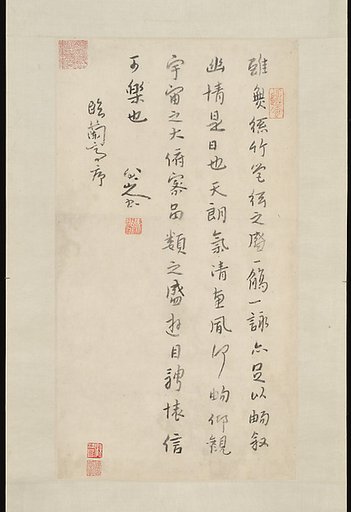 雖無絲竹管絃之盛一觴一詠亦足以暢敘
幽情是日也天朗氣清惠風和暢仰觀
宇宙之大俯察品類之盛遊目騁懷信
可樂也
八大山人
臨蘭亭序